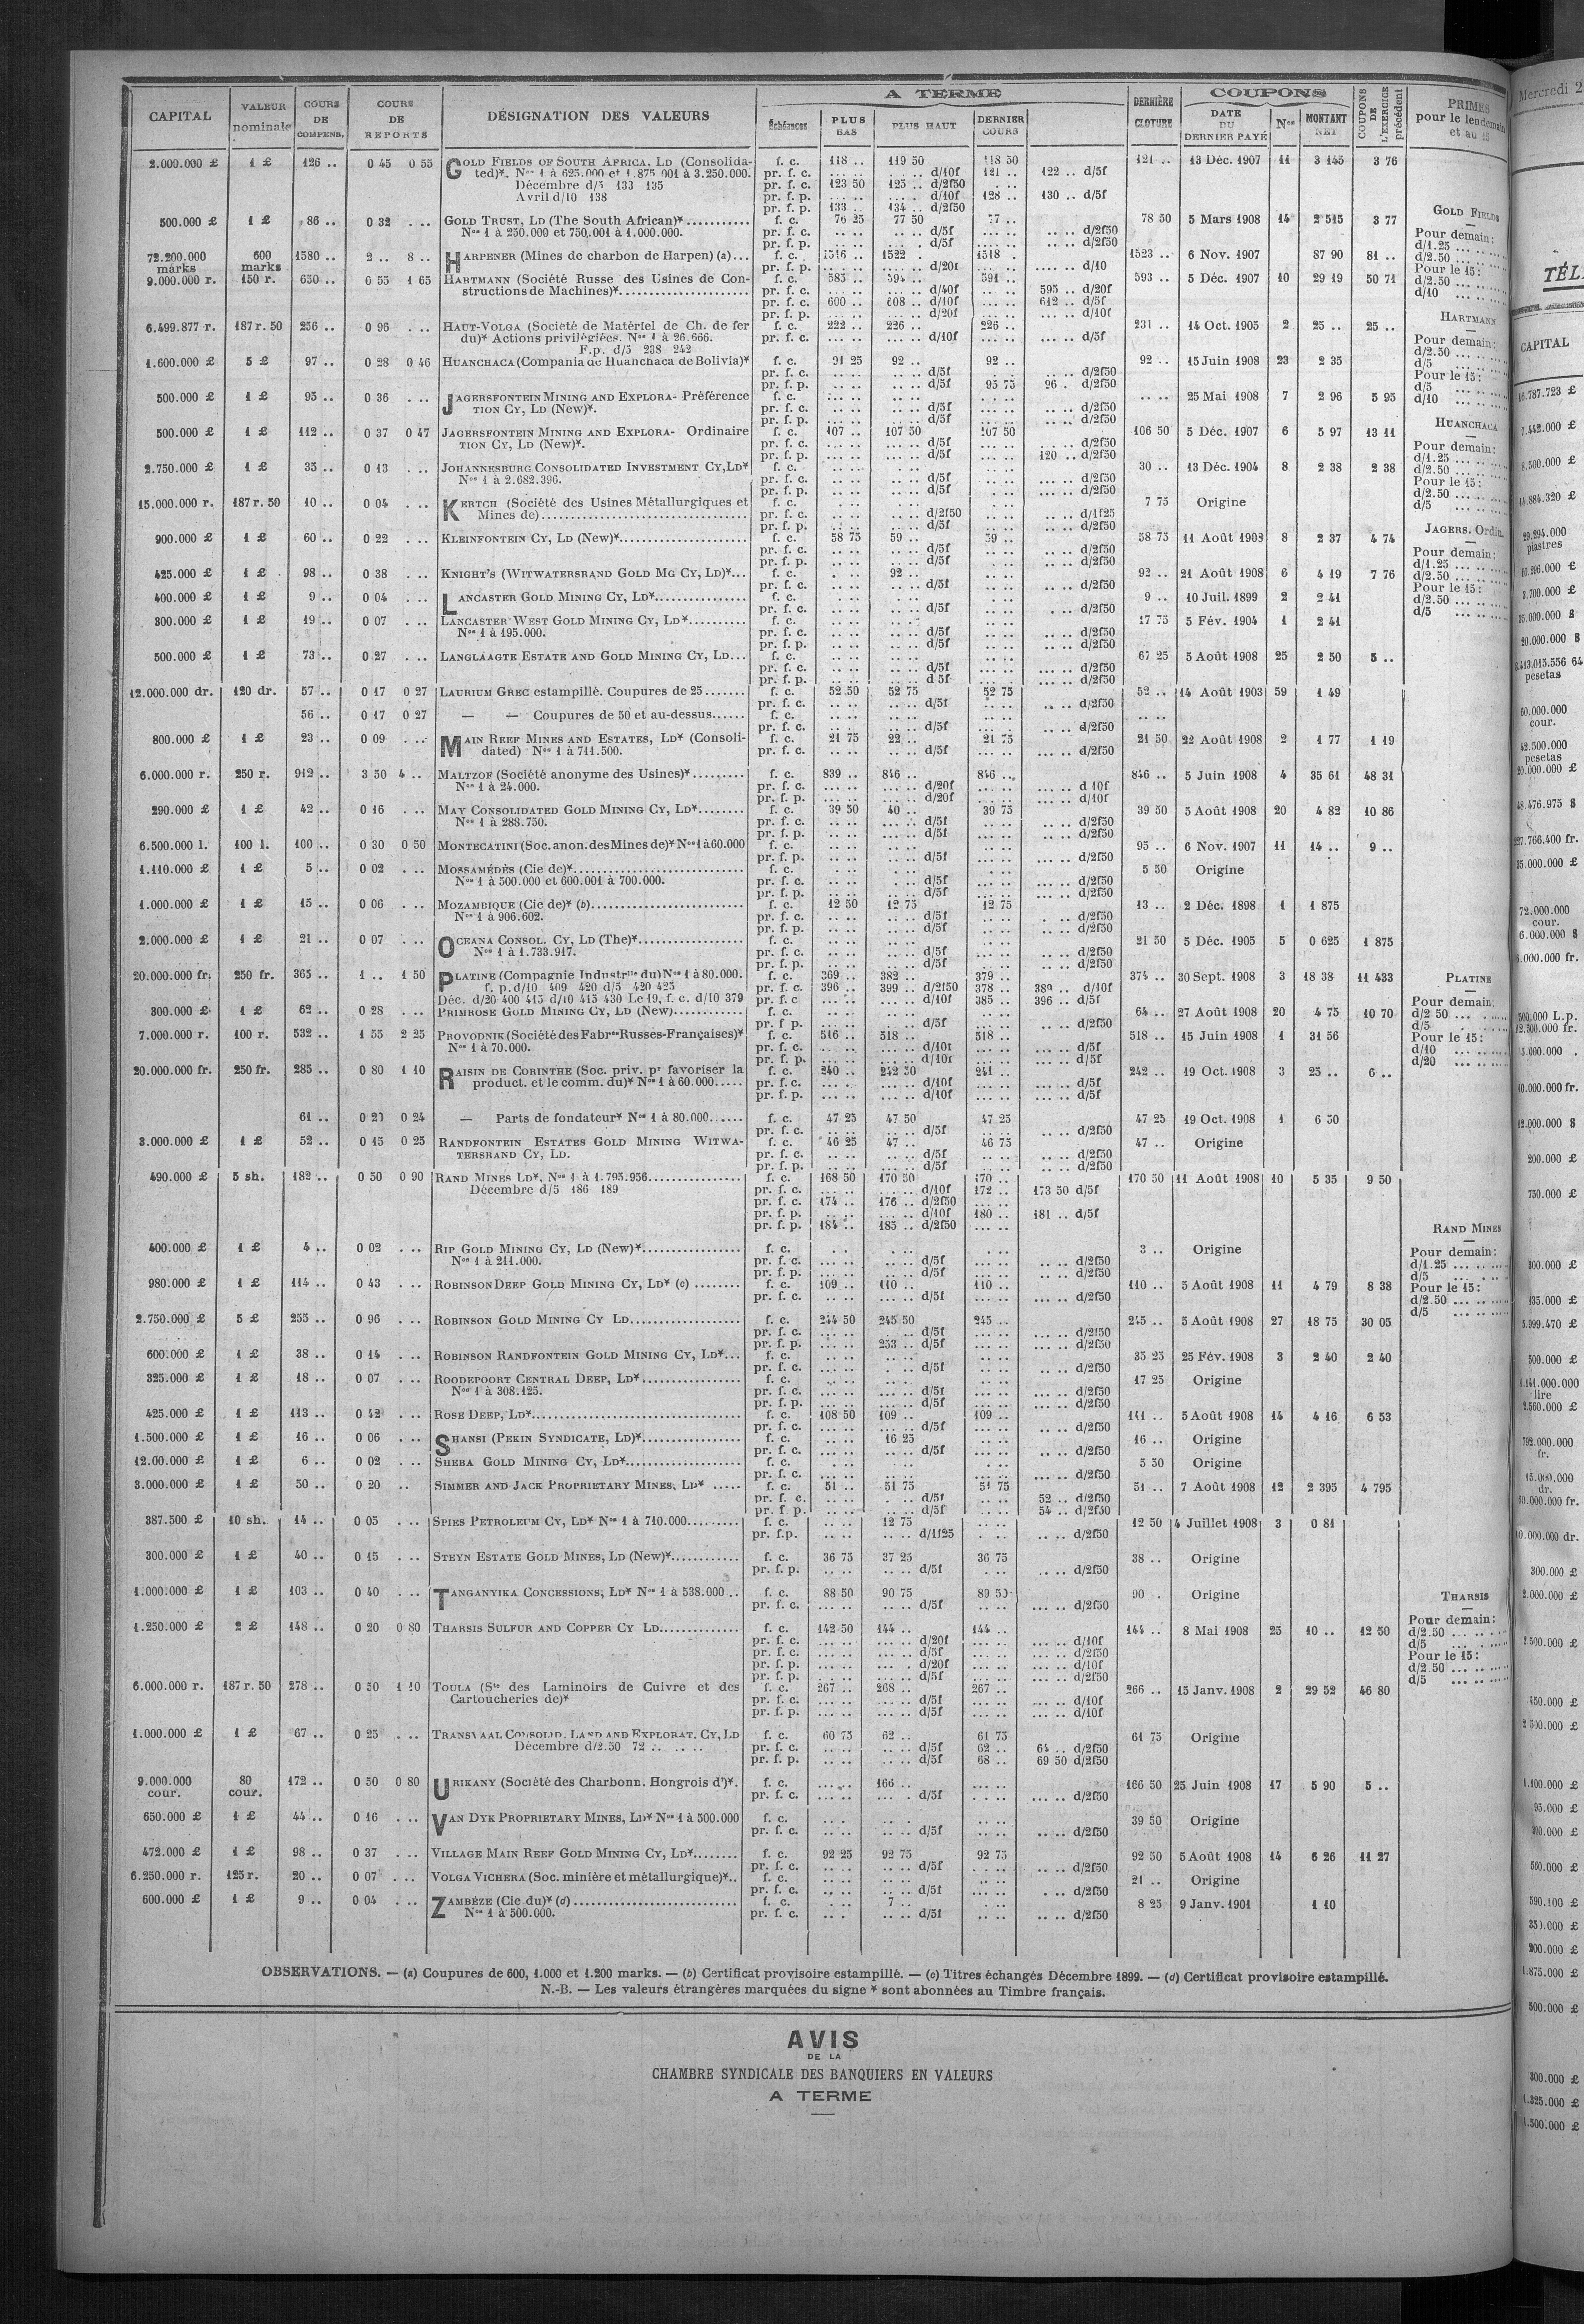 CAPITAL VALEUR nominale COURS DE COMPENS. COURS DE REPORTS DÉSIGNATION DES VALEURS A TERME Échéances PLUS BAS PLUS HAUT DERNIER COURS DERNIÈRE CLOTURE COUPONS DATE DU DERNIER PAYÉ Nos MONTANT NET COUPONS DE L'EXERCICE précédent PRIMES pour le lendemain et au 15
2.000.000 £ 1 £ 126 .. 0 45 0 55 GOLD FIELDS OF SOUTH AFRICA, LD (Consolida- f. c. 118 .. 119 50 118 50 121 .. 13 Déc. 1907 11 3 145 3 76
ted)*. Nos 1 à 625.000 et 1.875.001 à 3.250.000. pr. f. c. ... .. ... .. d/10f 121 .. 122 .. d/5f
Décembre d/5 133 135 pr. f. c. 123 50 125 .. d/2f50
Avril d/10 138 pr. f. p. ... .. d/10f 128 .. 130 .. d/5f
pr. f. p. 133 .. 134 .. d/2f50
500.000 £ 1 £ 86 .. 0 32 . .. GOLD TRUST, LD (The South African)* f. c. 76 25 77 50 77 .. 78 50 5 Mars 1908 14 2 515 3 77
Nos 1 à 250.000 et 750.001 à 1.000.000. pr. f. c. d/5f d/2f50
pr. f. p. d/5f d/2f50
72.200.000 marks 600 marks 1580 .. 2 .. 8 .. HARPENER (Mines de charbon de Harpen) (a) f. c. 1516 .. 1522 . 1518 . 1523 .. 6 Nov. 1907 87 90 81 ..
pr. f. p. d/20f d/10
9.000.000 r. 150 r. 650 .. 0 55 1 65 HARTMANN (Société Russe des Usines de Con- f. c. 585 .. 594 .. 591 .. 593 .. 5 Déc. 1907 10 29 19 50 71
structions de Machines)* pr. f. c. d/40f 595 .. d/20f
pr. f. c. 600 .. 608 .. d/10f 612 .. d/5f
pr. f. p. d/20f d/10f
6.499.877 r. 187 r. 50 256 .. 0 96 . .. HAUT-VOLGA (Societé de Matériel de Ch. de fer f. c. 222 .. 226 .. 226 .. 231 .. 14 Oct. 1905 2 25 .. 25 ..
du)* Actions privilégiées. Nos 1 à 26.666. pr. f. c. d/10f d/5f
F.p. d/5 238 242
1.600.000 £ 5 £ 97 .. 0 28 0 46 HUANCHACA (Compania de Huanchaca de Bolivia)* f. c. 91 25 92 .. 92 .. 92 .. 15 Juin 1908 23 2 35
pr. f. c. d/5f d/2f50
pr. f. p. d/5f 95 75 96 . d/2f50
500.000 £ 1 £ 95 .. 0 36 . .. JAGERSFONTEIN MINING AND EXPLORA- Préférence f. c. 25 Mai 1908 7 2 96 5 95
TION CY, LD (New)*. pr. f. c. d/5f d/2f50
pr. f. p. d/5f d/2f50
500.000 £ 1 £ 112 .. 0 37 0 47 JAGERSFONTEIN MINING AND EXPLORA- Ordinaire f. c. 107 .. 107 50 107 50 106 50 5 Déc. 1907 6 5 97 13 11
TION CY, LD (New)*. pr. f. c. d/5f d/2f50
pr. f. p. d/5f 120 .. d/2f50
2.750.000 £ 1 £ 35 .. 0 13 . .. JOHANNESBURG CONSOLIDATED INVESTMENT CY, LD* f. c. 30 .. 13 Déc. 1904 8 2 38 2 38
Nos 1 à 2.682.396. pr. f. c. d/5f d/2f50
pr. f. p. d/5f d/2f50
15.000.000 r. 187 r. 50 10 .. 0 04 . .. KERTCH (Société des Usines Métallurgiques et f. c. 7 75 Origine
Mines de) pr. f. c. d/2f50 d/1f25
pr. f. p. d/5f d/2f50
900.000 £ 1 £ 60 .. 0 22 . .. KLEINFONTEIN CY, LD (New)* f. c. 58 75 59 .. 59 .. 58 75 11 Août 1903 8 2 37 4 74
pr. f. c. d/5f d/2f50
pr. f. p. d/5f d/2f50
425.000 £ 1 £ 98 .. 0 38 . .. KNIGHT'S (WITWATERSRAND GOLD MG CY, LD)* f. c. 92 .. 92 .. 21 Août 1908 6 4 19 7 76
pr. f. c. d/5f d/2f50
400.000 £ 1 £ 9 .. 0 04 . .. LANCASTER GOLD MINING CY, LD* f. c. 9 .. 10 Juil. 1899 2 2 41
pr. f. c. d/5f d/2f50
300.000 £ 1 £ 19 .. 0 07 . .. LANCASTER WEST GOLD MINING CY, LD* f. c. 17 75 5 Fév. 1904 1 2 41
Nos 1 à 195.000. pr. f. c. d/5f d/2f50
pr. f. p. d/5f d/2f50
500.000 £ 1 £ 73 .. 0 27 . .. LANGLAAGTE ESTATE AND GOLD MINING CY, LD f. c. 67 25 5 Août 1908 25 2 50 5 ..
pr. f. c. d/5f d/2f50
pr. f. p. d 5f d/2f50
12.000.000 dr. 120 dr. 57 .. 0 17 0 27 LAURIUM GREC estampillé. Coupures de 25 f. c. 52 50 52 75 52 75 52 .. 14 Août 1903 59 1 49
pr. f. c. d/5f d/2f50
56 .. 0 17 0 27 — — Coupures de 50 et au-dessus f. c.
pr. f. c. d/5f d/2f50
800.000 £ 1 £ 23 .. 0 09 . .. MAIN REEF MINES AND ESTATES, LD* (Consoli- f. c. 21 75 22 .. 21 75 21 50 22 Août 1908 2 1 77 1 19
dated) Nos 1 à 711.500. pr. f. c. d/5f d/2f50
6.000.000 r. 250 r. 912 .. 3 50 4 .. MALTZOF (Société anonyme des Usines)* f. c. 839 .. 846 .. 846 .. 846 .. 5 Juin 1908 4 35 61 48 31
Nos 1 à 24.000. pr. f. c. d/20f d 10f
pr. f. p. d/20f d/10f
290.000 £ 1 £ 42 .. 0 16 . .. MAY CONSOLIDATED GOLD MINING CY, LD* f. c. 39 50 40 .. 39 75 39 50 5 Août 1908 20 4 82 10 86
Nos 1 à 288.750. pr. f. c. d/5f d/2f50
pr. f. p. d/5f d/2f50
6.500.000 l. 100 l. 100 .. 0 30 0 50 MONTECATINI (Soc. anon. des Mines de)* Nos 1 à 60.000 f. c. 95 .. 6 Nov. 1907 11 14 .. 9 ..
pr. f. p. d/5f d/2f50
1.110.000 £ 1 £ 5 .. 0 02 . .. MOSSAMÉDÈS (Cie de)* f. c. 5 50 Origine
Nos 1 à 500.000 et 600.001 à 700.000. pr. f. c. d/5f d/2f50
pr. f. p. d/5f d/2f50
1.000.000 £ 1 £ 15 .. 0 06 . .. MOZAMBIQUE (Cie de)* (b) f. c. 12 50 12 75 12 75 13 .. 2 Déc. 1898 1 1 875
Nos 1 à 906.602. pr. f. c. d/5f d/2f50
pr. f. p. d/5f d/2f50
2.000.000 £ 1 £ 21 .. 0 07 . .. OCEANA CONSOL. CY, LD (The)* f. c. 21 50 5 Déc. 1905 5 0 625 1 875
Nos 1 à 1.733.917. pr. f. c. d/5f d/2f50
pr. f. p. d/5f d/2f50
20.000.000 fr. 250 fr. 365 .. 1 .. 1 50 PLATINE (Compagnie Industrlle du) Nos 1 à 80.000. f. c. 369 .. 382 .. 379 .. 374 .. 30 Sept. 1908 3 18 38 11 433
f. p. d/10 409 420 d/5 420 425 pr. f. c. 396 .. 399 .. d/2f50 378 .. 389 .. d/10f
Déc. d/20 400 415 d/10 415 430 Le 19, f. c. d/10 379 pr. f. c d/10f 385 .. 396 .. d/5f
300.000 £ 1 £ 62 .. 0 28 . .. PRIMROSE GOLD MINING CY, LD (New) f. c. 64 .. 27 Août 1908 20 4 75 10 70
pr. f p. d/5f d/2f50
7.000.000 r. 100 r. 532 .. 1 55 2 25 PROVODNIK (Société des Fabres Russes-Françaises)* f. c. 516 .. 518 .. 518 .. 518 .. 15 Juin 1908 1 31 56
Nos 1 à 70.000. pr. f. c. d/10f d/5f
pr. f. p. d/10f d/5f
20.000.000 fr. 250 fr. 285 .. 0 80 1 10 RAISIN DE CORINTHE (Soc. priv. pr favoriser la f. c. 240 .. 242 50 241 .. 242 .. 19 Oct. 1908 3 25 .. 6 ..
product. et le comm. du)* Nos 1 à 60.000 pr. f. c. d/10f d/5f
pr. f. p. d/10f d/5f
61 .. 0 20 0 24 — Parts de fondateur* Nos 1 à 80.000 f. c. 47 25 47 50 47 25 47 25 19 Oct. 1908 1 6 50
pr. f. c. d/5f d/2f50
3.000.000 £ 1 £ 52 .. 0 15 0 25 RANDFONTEIN ESTATES GOLD MINING WITWA- f. c. 46 25 47 .. 46 75 47 .. Origine
TERSRAND CY, LD. pr. f. c. d/5f d/2f50
pr. f. p. d/5f d/2f50
490.000 £ 5 sh. 182 .. 0 50 0 90 RAND MINES LD*. Nos 1 à 1.795.956 f. c. 168 50 170 50 170 .. 170 50 11 Août 1908 10 5 35 9 50
Décembre d/5 186 189 pr. f. c. d/10f 172 .. 173 50 d/5f
pr. f. c. 174 .. 176 .. d/2f50
pr. f. p. d/10f 180 .. 181 .. d/5f
pr. f. p. 184 .. 185 .. d/2f50
400.000 £ 1 £ 4 .. 0 02 . .. RIP GOLD MINING CY, LD (New)* f. c. 3 .. Origine
Nos 1 à 211.000. pr. f. c. d/5f d/2f50
pr. f. p. d/5f d/2f50
980.000 £ 1 £ 114 .. 0 43 . .. ROBINSON DEEP GOLD MINING CY, LD* (c) f. c. 109 .. 110 .. 110 .. 110 .. 5 Août 1908 11 4 79 8 38
pr. f. c. d/5f d/2f50
2.750.000 £ 5 £ 255 .. 0 96 . .. ROBINSON GOLD MINING CY LD f. c. 244 50 245 50 245 .. 245 .. 5 Août 1908 27 18 75 30 05
pr. f. c. d/5f d/2f50
pr. f. p. 253 .. d/5f d/2f50
600.000 £ 1 £ 38 .. 0 14 . .. ROBINSON RANDFONTEIN GOLD MINING CY, LD* f. c. 35 25 25 Fév. 1908 3 2 40 2 40
pr. f. c. d/5f d/2f50
325.000 £ 1 £ 18 .. 0 07 . .. ROODEPOORT CENTRAL DEEP, LD* f. c. 17 25 Origine
Nos 1 à 308.125. pr. f. c. d/5f d/2f50
pr. f. p. d/5f d/2f50
425.000 £ 1 £ 113 .. 0 42 . .. ROSE DEEP, LD* f. c. 108 50 109 .. 109 .. 111 .. 5 Août 1908 14 4 16 6 53
pr. f. c. d/5f d/2f50
1.500.000 £ 1 £ 16 .. 0 06 . .. SHANSI (PEKIN SYNDICATE, LD)* f. c. 16 25 16 .. Origine
pr. f. c. d/5f d/2f50
12.00.000 £ 1 £ 6 .. 0 02 . .. SHEBA GOLD MINING CY, LD* f. c. 5 50 Origine
pr. f. c. d/2f50
3.000.000 £ 1 £ 50 .. 0 20 .. SIMMER AND JACK PROPRIETARY MINES, LD* f. c. 51 .. 51 75 51 75 51 .. 7 Août 1908 12 2 395 4 795
pr. f. c. d/5f 52 .. d/2f50
pr. f p. d/5f 54 .. d/2f50
387.500 £ 10 sh. 14 .. 0 05 . .. SPIES PETROLEUM CY, LD* Nos 1 à 710.000 f. c. 12 75 12 50 4 Juillet 1908 3 0 81
pr. f.p. d/1f25 d/2f50
300.000 £ 1 £ 40 .. 0 15 . .. STEYN ESTATE GOLD MINES, LD (New)* f. c. 36 75 37 25 36 75 38 .. Origine
pr. f. p. d/5f d/2f50
1.000.000 £ 1 £ 103 .. 0 40 . .. TANGANYIKA CONCESSIONS, LD* Nos 1 à 538.000 .. f. c. 88 50 90 75 89 50 90 . Origine
pr. f. c. d/5f d/2f50
1.250.000 £ 2 £ 148 .. 0 20 0 80 THARSIS SULFUR AND COPPER CY LD. f. c. 142 50 144 .. 144 .. 144 .. 8 Mai 1908 25 10 .. 12 50
pr. f. c. d/20f d/10f
pr. f. c. d/5f d/2f50
pr. f. p. d/20f d/10f
pr. f. p. d/5f d/2f50
6.000.000 r. 187 r. 50 278 .. 0 50 1 10 TOULA (Sté des Laminoirs de Cuivre et des f. c. 267 .. 268 .. 267 .. 266 .. 15 Janv. 1908 2 29 52 46 80
Cartoucheries de)* pr. f. c. d/5f d/10f
pr. f. p. d/5f d/10f
1.000.000 £ 1 £ 67 .. 0 25 . .. TRANSVAAL CONSOLID. LAND AND EXPLORAT. CY, LD f. c. 60 75 62 .. 61 75 61 75 Origine
Décembre d/2.50 72 .. .. .. pr. f. c. d/5f 62 .. 64 .. d/2f50
pr. f. p. d/5f 68 .. 69 50 d/2f50
9.000.000 cour. 80 cour. 172 .. 0 50 0 80 URIKANY (Société des Charbonn. Hongrois d')*. f. c. 166 .. 166 50 25 Juin 1908 17 5 90 5 ..
pr. f. c. d/5f d/2f50
650.000 £ 1 £ 44 .. 0 16 . .. VAN DYK PROPRIETARY MINES, LD* Nos 1 à 500.000 f. c. 39 50 Origine
pr. f. c. d/5f d/2f50
472.000 £ 1 £ 98 .. 0 37 . .. VILLAGE MAIN REEF GOLD MINING CY, LD* f. c. 92 25 92 75 92 75 92 50 5 Août 1908 14 6 26 11 27
pr. f. c. d/5f d/2f50
6.250.000 r. 125 r. 20 .. 0 07 . .. VOLGA VICHERA (Soc. minière et métallurgique)* f. c. 21 .. Origine
pr. f. c. d/5f d/2f50
600.000 £ 1 £ 9 .. 0 04 . .. ZAMBÈZE (Cie du)* (d) f. c. 7 .. 8 25 9 Janv. 1901 1 10
Nos 1 à 500.000. pr. f. c. d/5f d/2f50
GOLD FIELDS
Pour demain:
d/1.25
d/2.50
Pour le 15:
d/2.50
d/10
HARTMANN
Pour demain:
d/2.50
d/5
Pour le 15:
d/5
d/10
HUANCHACA
Pour demain:
d/1.25
d/2.50
Pour le 15:
d/2.50
d/5
JAGERS. Ordin.
Pour demain:
d/1.25
d/2.50
Pour le 15:
d/2.50
d/5
PLATINE
Pour demain:
d/2 50
d/5
Pour le 15:
d/10
d/20
RAND MINES
Pour demain:
d/1.25
d/5
Pour le 15:
d/2.50
d/5
THARSIS
Pour demain:
d/2.50
d/5
Pour le 15:
d/2.50
d/5
OBSERVATIONS. — (a) Coupures de 600, 1.000 et 1.200 marks. — (b) Certificat provisoire estampillé. — (c) Titres échangés Décembre 1899. — (d) Certificat provisoire estampillé.
N.-B. — Les valeurs étrangères marquées du signe * sont abonnées au Timbre français.
AVIS
DE LA
CHAMBRE SYNDICALE DES BANQUIERS EN VALEURS
A TERME
Mercredi 2
TÉL
CAPITAL
7.442.000 £
8.500.000 £
29.294.000
piastres
3.700.000 £
20.000.000 $
pesetas
60.000.000
cour.
42.500.000
pesetas
72.000.000
cour.
6.000.000 $
200.000 £
750.000 £
500.000 £
lire
792.000.000
fr.
15.000.000
dr.
300.000 £
560.000 £